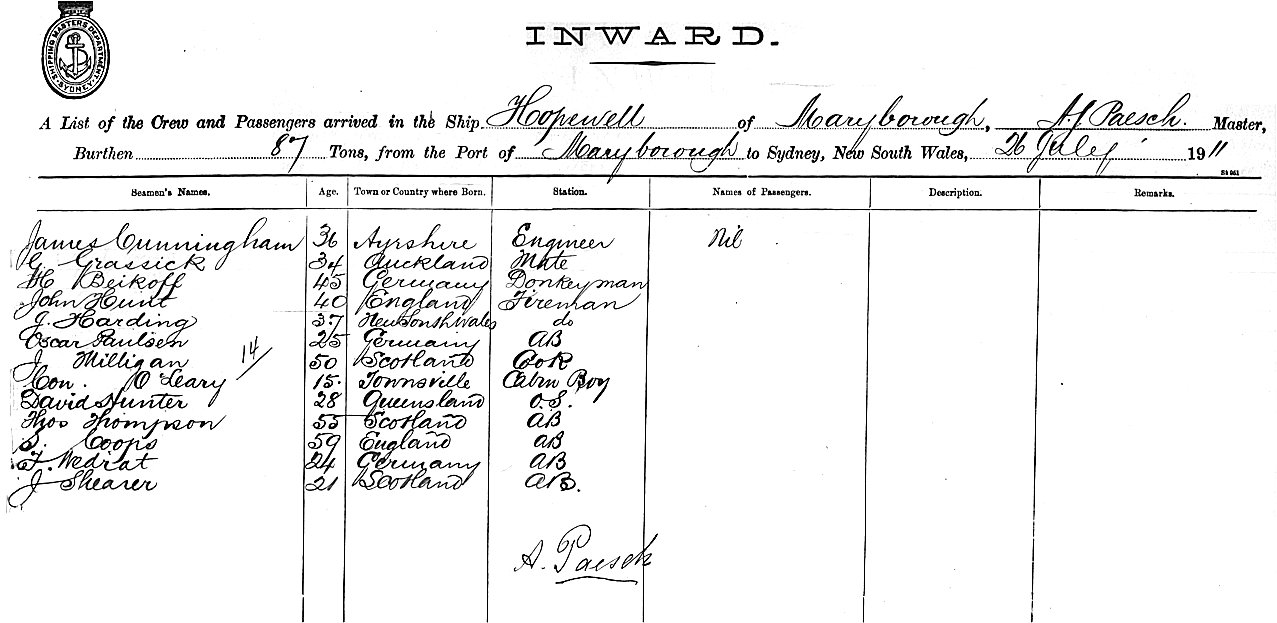 SHIPPING MASTERS DEPARTMENT SYDNEY
INWARD.
A List of the Crew and Passengers arrived in the Ship Hopewell of Maryborough, A. Paesch. Master,
Burthen 87 Tons, from the Port of Maryborough to Sydney, New South Wales, 26 July 1911
Seamen's Names. Age. Town or Country where Born. Station. Names of Passengers. Description. Remarks.
James Cunningham 36 Ayrshire Engineer Nil
G Grassick 34 Auckland Mate
H Beikoff 45 Germany Donkeyman
John Hunt 40 England Fireman
J. Harding 37 New South Wales do
Oscar Paulsen 25 Germany AB
J Milligan 50 Scotland Cook
14
Con. O'Leary 15. Townsville Cabin Boy
David Hunter 28 Queensland O.S.
Thos Thompson 55 Scotland AB
S. Coops 59 England AB
F. Wedrat 24 Germany AB
J Shearer 21 Scotland AB.
A. Paesch